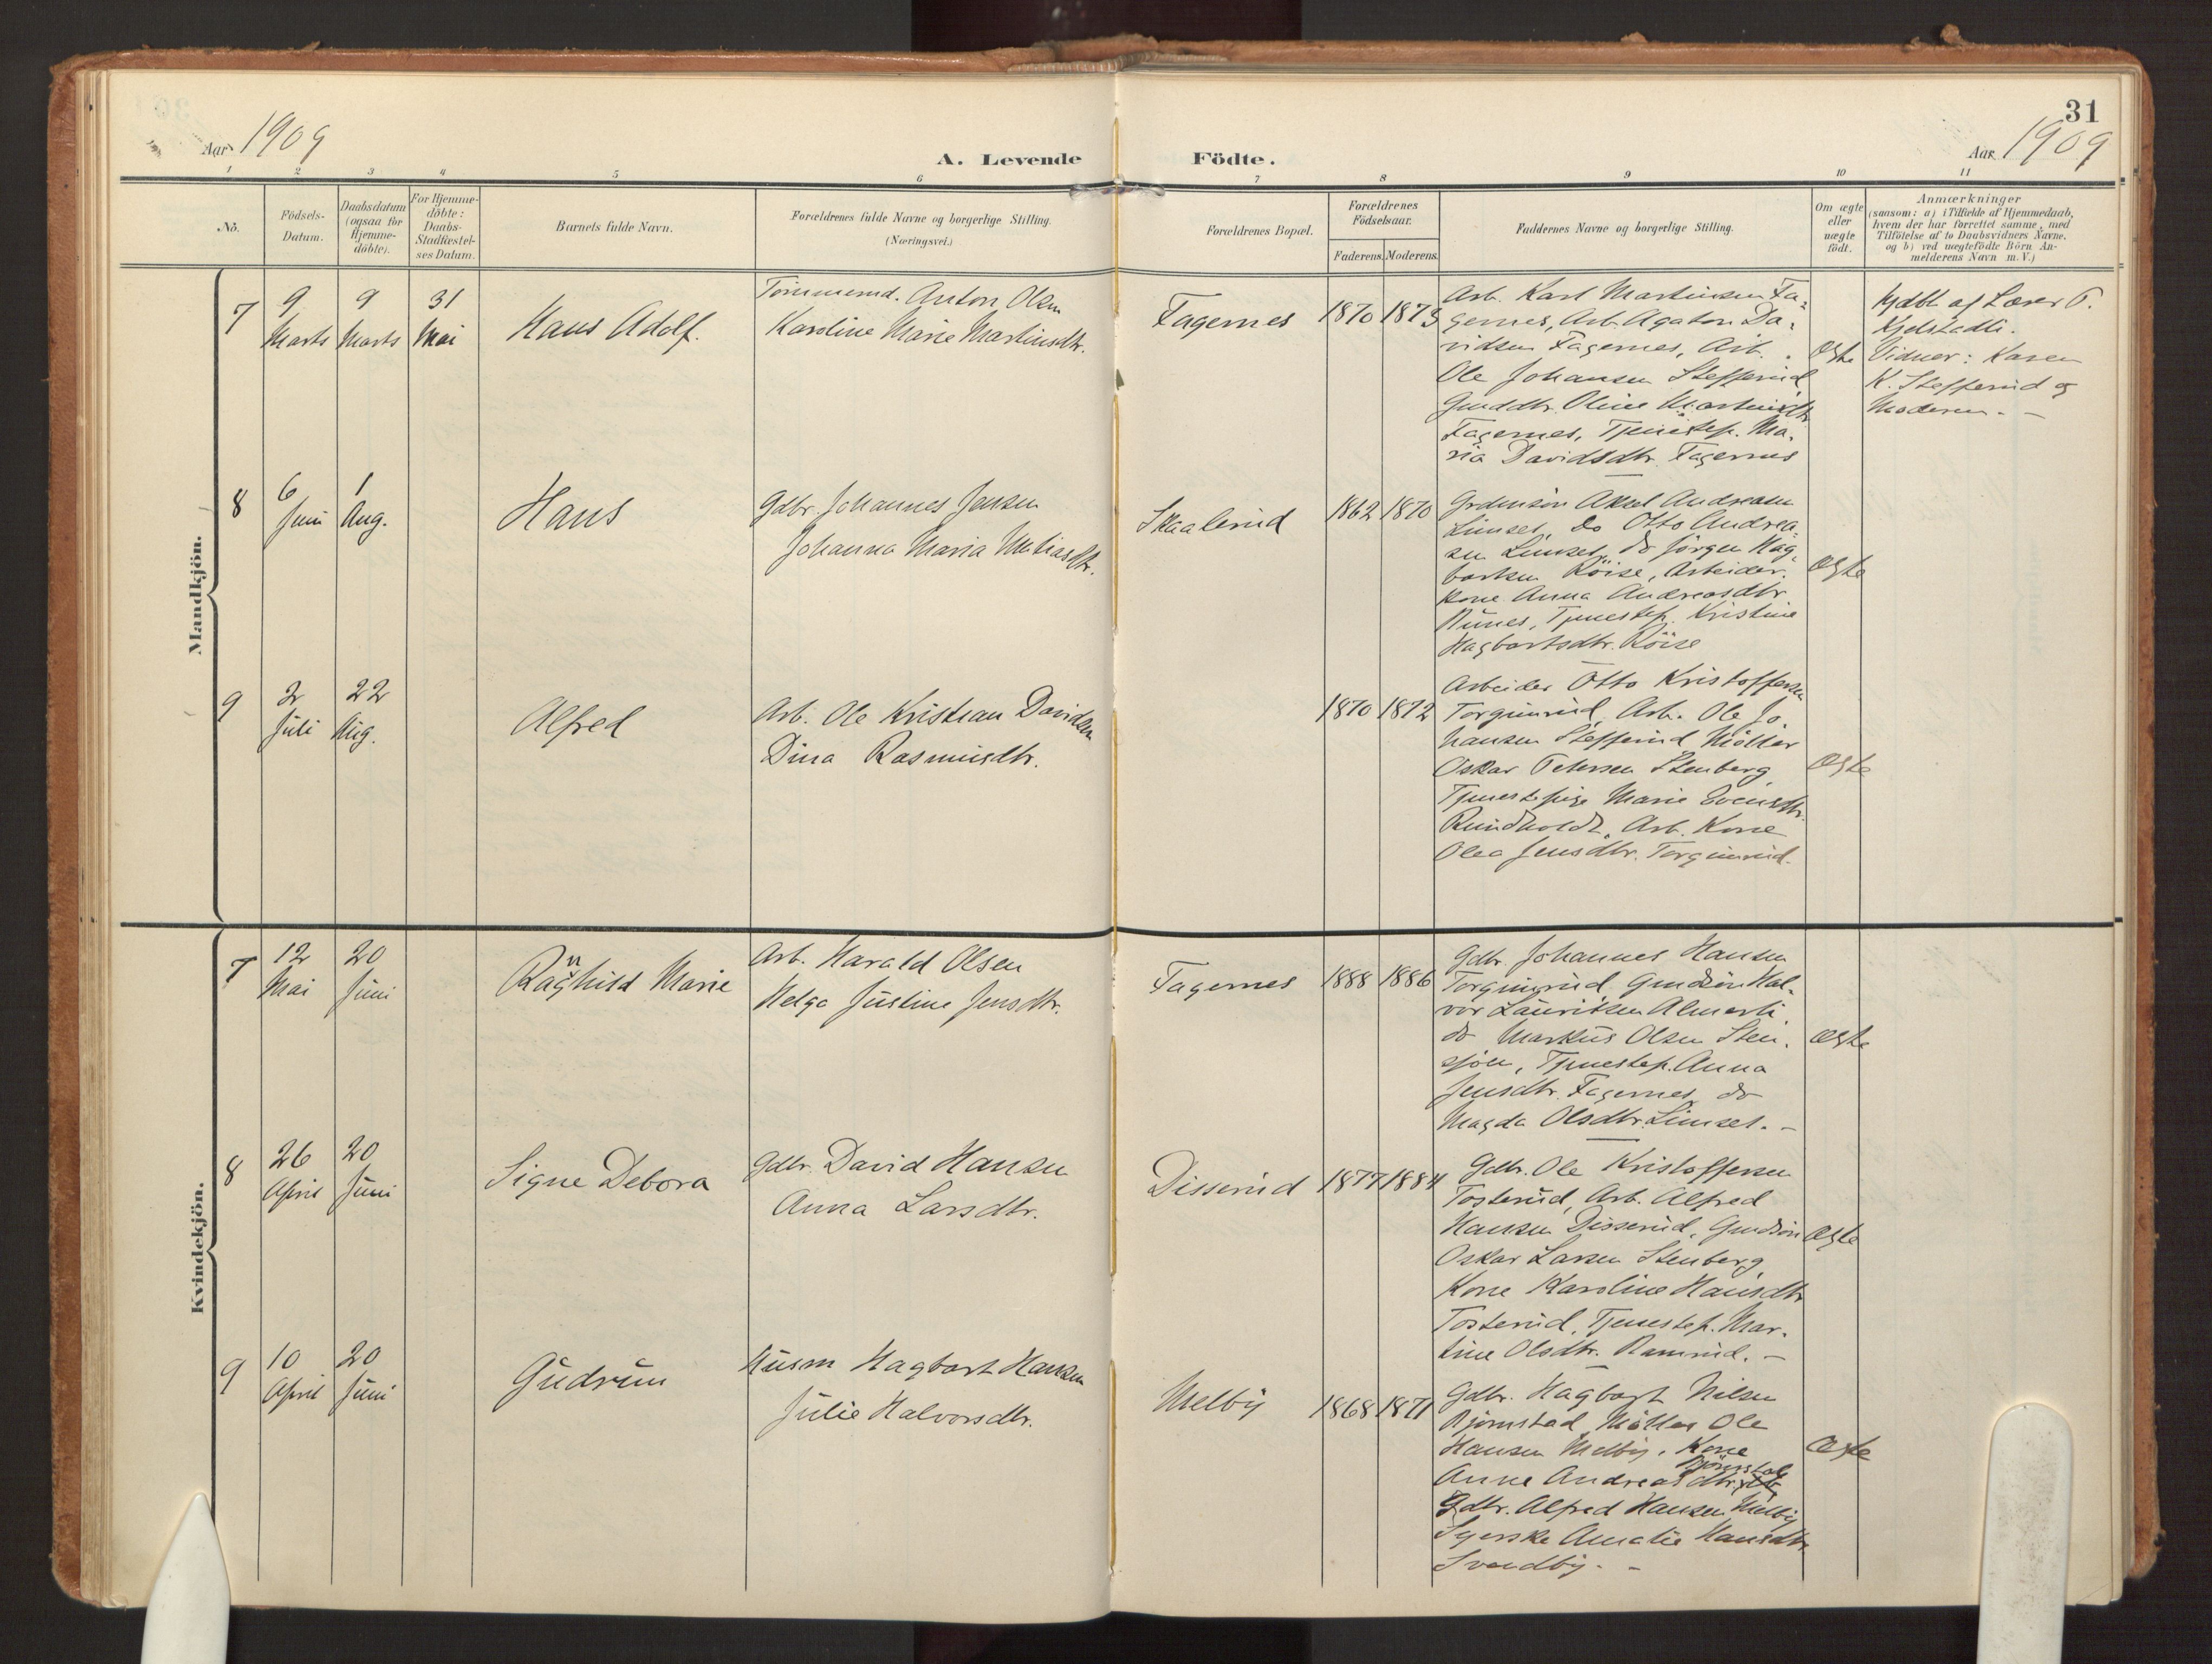 31
Aar 1909
A. Levende Födte.
Aar 1909
1 2 3 4 5 6 7 8 9 10 11
No.
Födsels-
Datum.
Daabsdatum
(ogsaa for
Hjemme-
döbte).
For Hjemme-
döbte:
Daabs-
Stadfæstel-
ses Datum.
Barnets fulde Navn.
Forældrenes fulde Navne og borgerlige Stilling.
(Næringsvei.)
Forældrenes Bopæl.
Forældrenes
Födselsaar.
Faderens. Moderens.
Faddernes Navne og borgerlige Stilling.
Om ægte
eller
uægte
födt.
Anmærkninger
(saasom: a) i Tilfælde af Hjemmedaab,
hvem der har forrettet samme, med
Tilföielse af to Daabsvidners Navne,
og b) ved uægtefödte Börn An-
melderens Navn m. V.)
Mandkjön.
7
9
Marts
9
Marts
31
Mai
Hans Adolf.
Tömmermd. Anton Olsen
Karoline Marie Martinsdtr.
Fagernes
1870 1873
Arb. Karl Martinsen Fa-
gernes, Arb. Agaton Da-
vidsen Fagernes, Arb.
Ole Johansen Stefferud
Gmddtr. Oline Martinsdtr
Fagernes, Tjenestep. Ma-
ria Davidsdtr. Fagernes
Ægte
Hjdbt af Lærer P.
Kjelstadli.
Vidner: Karen
K. Stefferud og
Moderen. -
8
6
Juni
1
Aug.
Hans
Gdbr. Johannes Jensen
Johanna Maria Matiasdtr.
Skaalerud
1862 1870
Grdmsön Aksel Andreasen
Linset, do Otto Andrea-
sen Linset, do Jörgen Hag-
bartsen Röise, Arbeider-
kone Anna Andreasdtr
Rünes, Tjenestep. Kristine
Hagbartsdtr. Röise
Ægte
9
2
Juli
22
Aug.
Alfred
Arb. Ole Kristian Davidsen
Dina Rasmusdtr.
1870 1872
Arbeider Otto Kristoffersen
Torgunrud, Arb. Ole Jo-
hansen Stefferud, Möller
Oskar Petersen Stenberg
Tjenestepige Marie Svensdtr.
Rundholdt, Arb. Kone
Olea Jensdtr. Torgunrud.
Ægte
Kvindekjön.
7
12
Mai
20
Juni
Ragnhild Marie
Arb. Harald Olsen
Helga Justine Jensdtr.
Fagernes
1888 1886
Gdbr. Johannes Hansen
Torgunrud, Gmdsön Hal-
vor Lauritsen Almerli
do Markus Olsen Sten-
sjöen, Tjenestep. Anna
Jensdtr. Fagernes, do
Magda Olsdtr. Linset. -
Ægte
8
26
April
20
Juni
Signe Debora
Gdbr. David Hansen
Anna Larsdtr.
Disserud
1877 1884
Gdbr. Ole Kristoffersen
Tosterud, Arb. Alfred
Hansen Disserud, Gmdsön
Oskar Larsen Stenberg
Kone Karoline Hansdtr
Tosterud, Tjenestep. Mar-
tine Olsdtr. Ramrud. -
Ægte
9
10
April
20
Juni
Gudrun
Husm Hagbart Hansen
Julie Halvorsdtr.
Melby
1868 1871
Gdbr. Hagbart Nilsen
Björnstad, Möller Ole
Hansen Melby, Kone
Anne Andreasdtr. Björnstad
Gdbr. Alfred Hansen Melby
Syerske Amalie Hansdtr
Svendby. -
Ægte